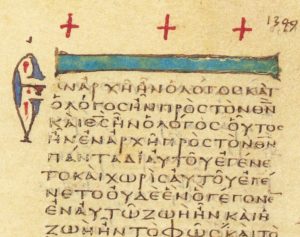 1399
ΕΝΑΡΧΗΗΝΟΛΟΓΟϹΚΑΙ
ΟΛΟΓΟϹΗΝΠΡΟϹΤΟΝΘΝ
ΚΑΙΘϹΗΝΟΛΟΓΟϹΟΥΤΟ
ΗΝΕΝΑΡΧΗΠΡΟϹΤΟΝΘΝ
ΠΑΝΤΑΔΙΑΥΤΟΥΕΓΕΝΕ
ΤΟΚΑΙΧΩΡΙϹΑΥΤΟΥΕΓΕ
ΝΕΤΟΟΥΔΕΕΝΟΓΕΓΟΝΕ
ΕΝΑΥΤΩΖΩΗΗΝΚΑΙΗ
ΖΩΗΗΝΤΟΦΩϹΚΑΙΤΟ